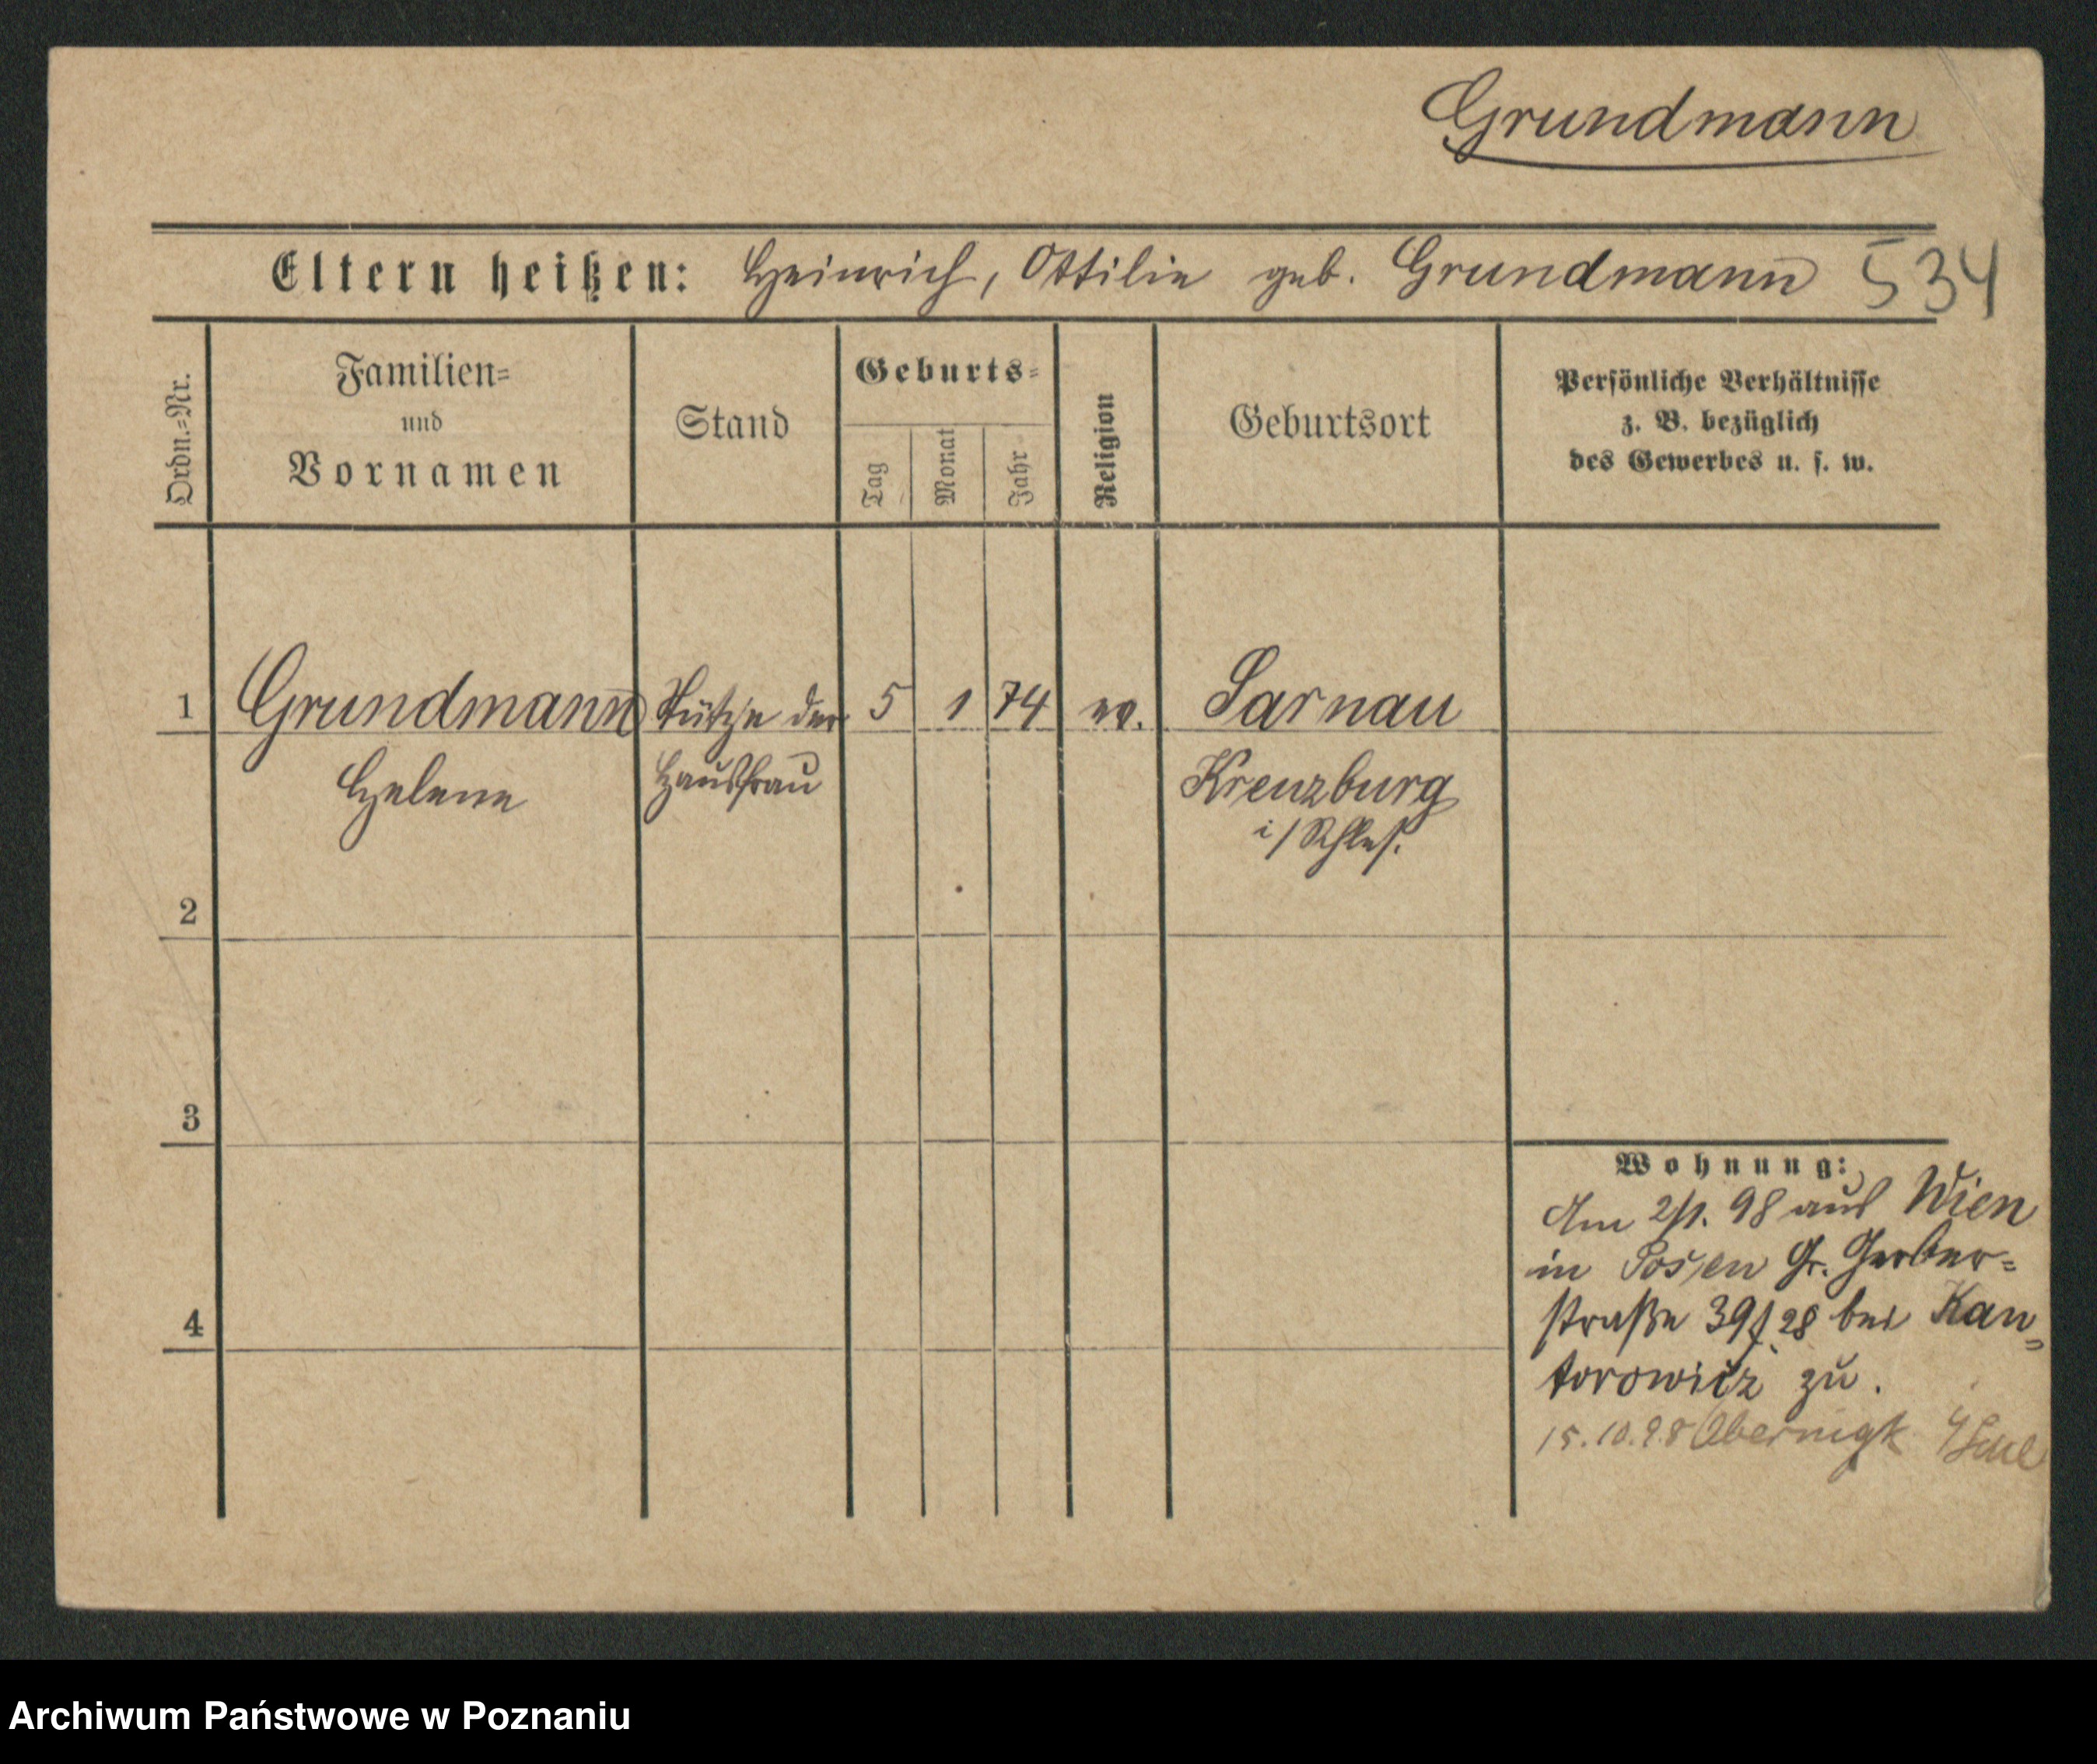 Grundmann
Eltern heißen: Heinrich, Ottilie geb. Grundmann 534
Ordn.=Nr.
Familien=
und
Vornamen
Stand
Geburts=
Tag
Monat
Jahr
Religion
Geburtsort
Persönliche Verhältnisse
z. B. bezüglich
des Gewerbes u. s. w.
1 Grundmann Stütze der 5 1 74 ev. Sarnau
Helene Hausfrau Kreuzburg
i/Schles.
2
3
4
Wohnung:
Am 2/1. 98 aus Wien
in Posen Gr. Gerber=
straße 39/28 bei Kan=
torowicz zu.
15.10.98 Obernigk
Archiwum Państwowe w Poznaniu